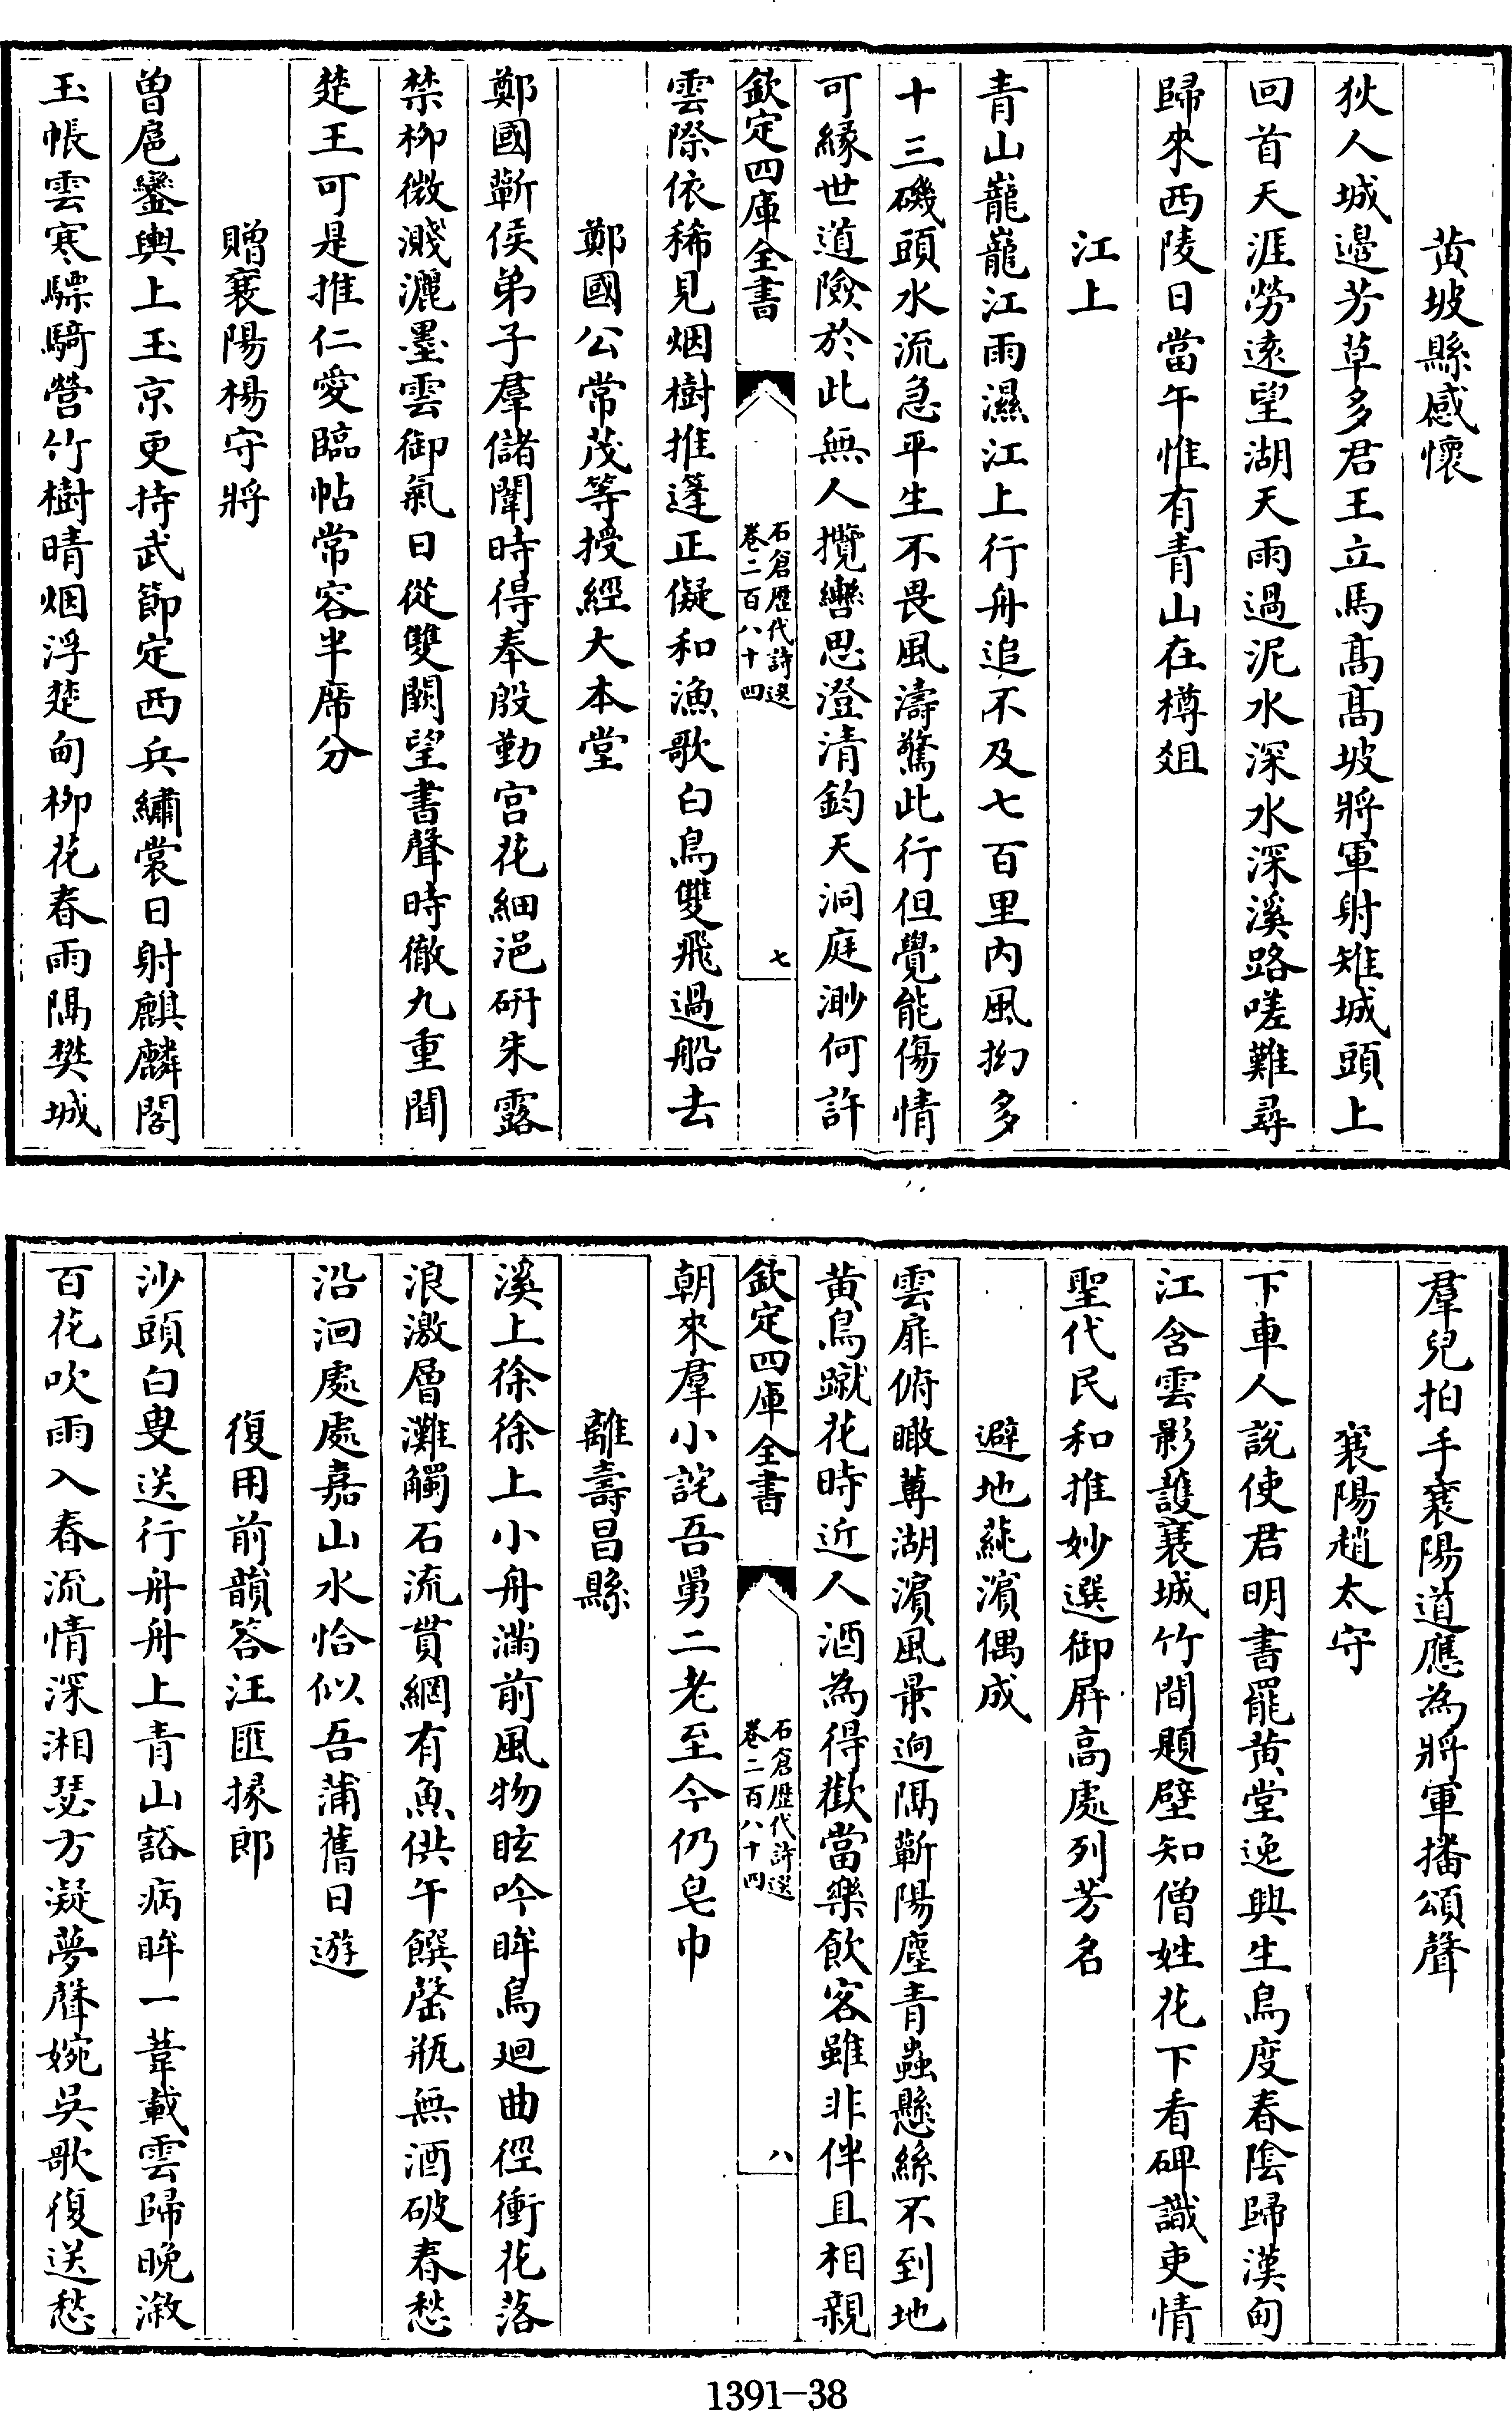 黄坡縣感懷
狄人城邉芳草多君王立馬髙髙坡將軍射雉城頭上
回首天涯勞逺望湖天雨過泥水深水深溪路嗟難尋
歸來西陵日當午惟有青山在樽俎
江上
青山巃巃江雨濕江上行舟追不及七百里内風抝多
十三磯頭水流急平生不畏風濤驚此行但覺能傷情
可縁世道險於此無人攬轡思澄清鈞天洞庭渺何許
欽定四庫全書
石倉歴代詩選
卷二百八十四
七
雲際依稀見烟樹推篷正儗和漁歌白鳥雙飛過船去
鄭國公常茂等授經大本堂
鄭國蘄侯弟子羣儲闈時得奉殷勤宫花細浥研朱露
禁栁微濺灑墨雲御氣日從雙闕望書聲時徹九重聞
楚王可是推仁愛臨帖常容半席分
贈襄陽楊守將
曽扈鑾輿上玉京更持武節定西兵繡裳日射麒麟閣
玉帳雲寒驃騎營竹樹晴烟浮楚甸栁花春雨隔樊城
羣兒拍手襄陽道應為將軍播頌聲
襄陽趙太守
下車人說使君明書罷黄堂逸興生鳥度春陰歸漢甸
江含雲影護襄城竹間題壁知僧姓花下看碑識吏情
聖代民和推妙選御屏高處列芳名
避地蕲濵偶成
雲扉俯瞰蓴湖濵風景逈隔蘄陽塵青蟲懸絲不到地
黄鳥蹴花時近人酒為得歡當樂飲客雖非伴且相親
欽定四庫全書
石倉歴代詩選
卷二百八十四
八
朝來羣小詫吾舅二老至今仍皂巾
離壽昌縣
溪上徐徐上小舟滿前風物眩吟眸鳥迴曲徑衝花落
浪激層灘觸石流貰網有魚供午饌罄瓶無酒破春愁
沿洄處處嘉山水恰似吾蒲舊日遊
復用前韻答汪匪掾郎
沙頭白叟送行舟舟上青山豁病眸一葦載雲歸晚溆
百花吹雨入春流情深湘瑟方凝夢聲婉吳歌復送愁
1391-38